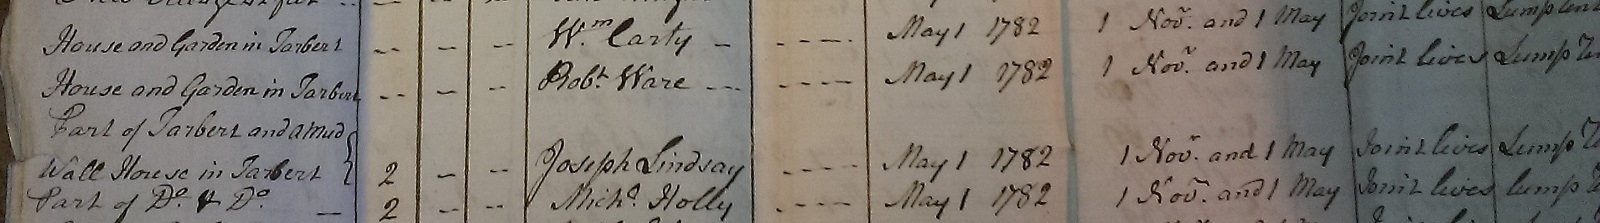 House and Garden in Tarbert -- - -- Wm. Carty - ---- May 1 1782 1 Novr. and 1 May Joint lives Lump
House and Garden in Tarbert -- - -- Robt. Ware --- ---- May 1 1782 1 Novr. and 1 May Joint lives Lump
Part of Tarbert and a Mud
Wall House in Tarbert 2 - -- Joseph Lindsay ---- May 1 1782 1 Novr. and 1 May Joint lives Lump
Part of Do. & Do. - 2 - -- Michl. Holly ---- May 1 1782 1 Novr. and 1 May Joint lives lump